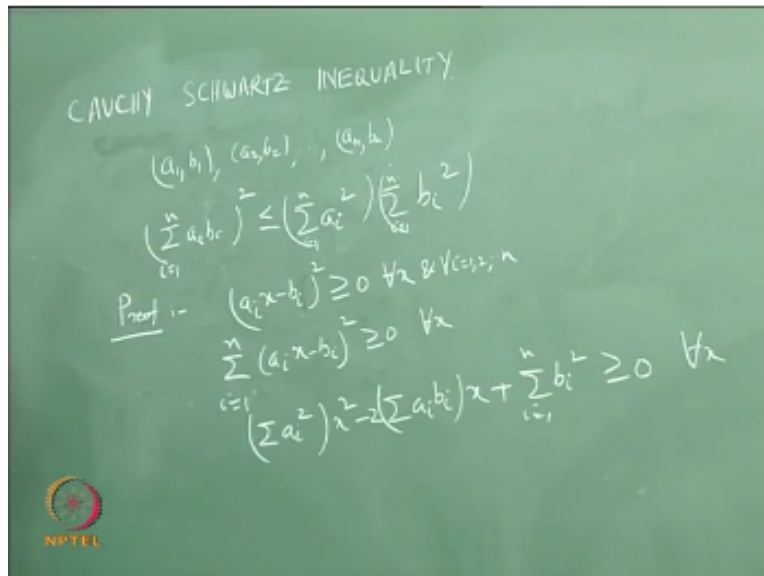 CAUCHY SCHWARTZ INEQUALITY.
(a₁, b₁), (a₂, b₂), ., (aₙ, bₙ)
(∑ᵢ₌₁ⁿ aᵢbᵢ)² ≤ (∑ᵢ₌₁ⁿ aᵢ²)(∑ᵢ₌₁ⁿ bᵢ²)
Proof :- (aᵢx-bᵢ)² ≥ 0 ∀x & ∀i=1,2,; n
∑ᵢ₌₁ⁿ (aᵢx-bᵢ)² ≥ 0 ∀x
(∑aᵢ²)x² - 2(∑aᵢbᵢ)x + ∑ᵢ₌₁ⁿ bᵢ² ≥ 0 ∀x
NPTEL